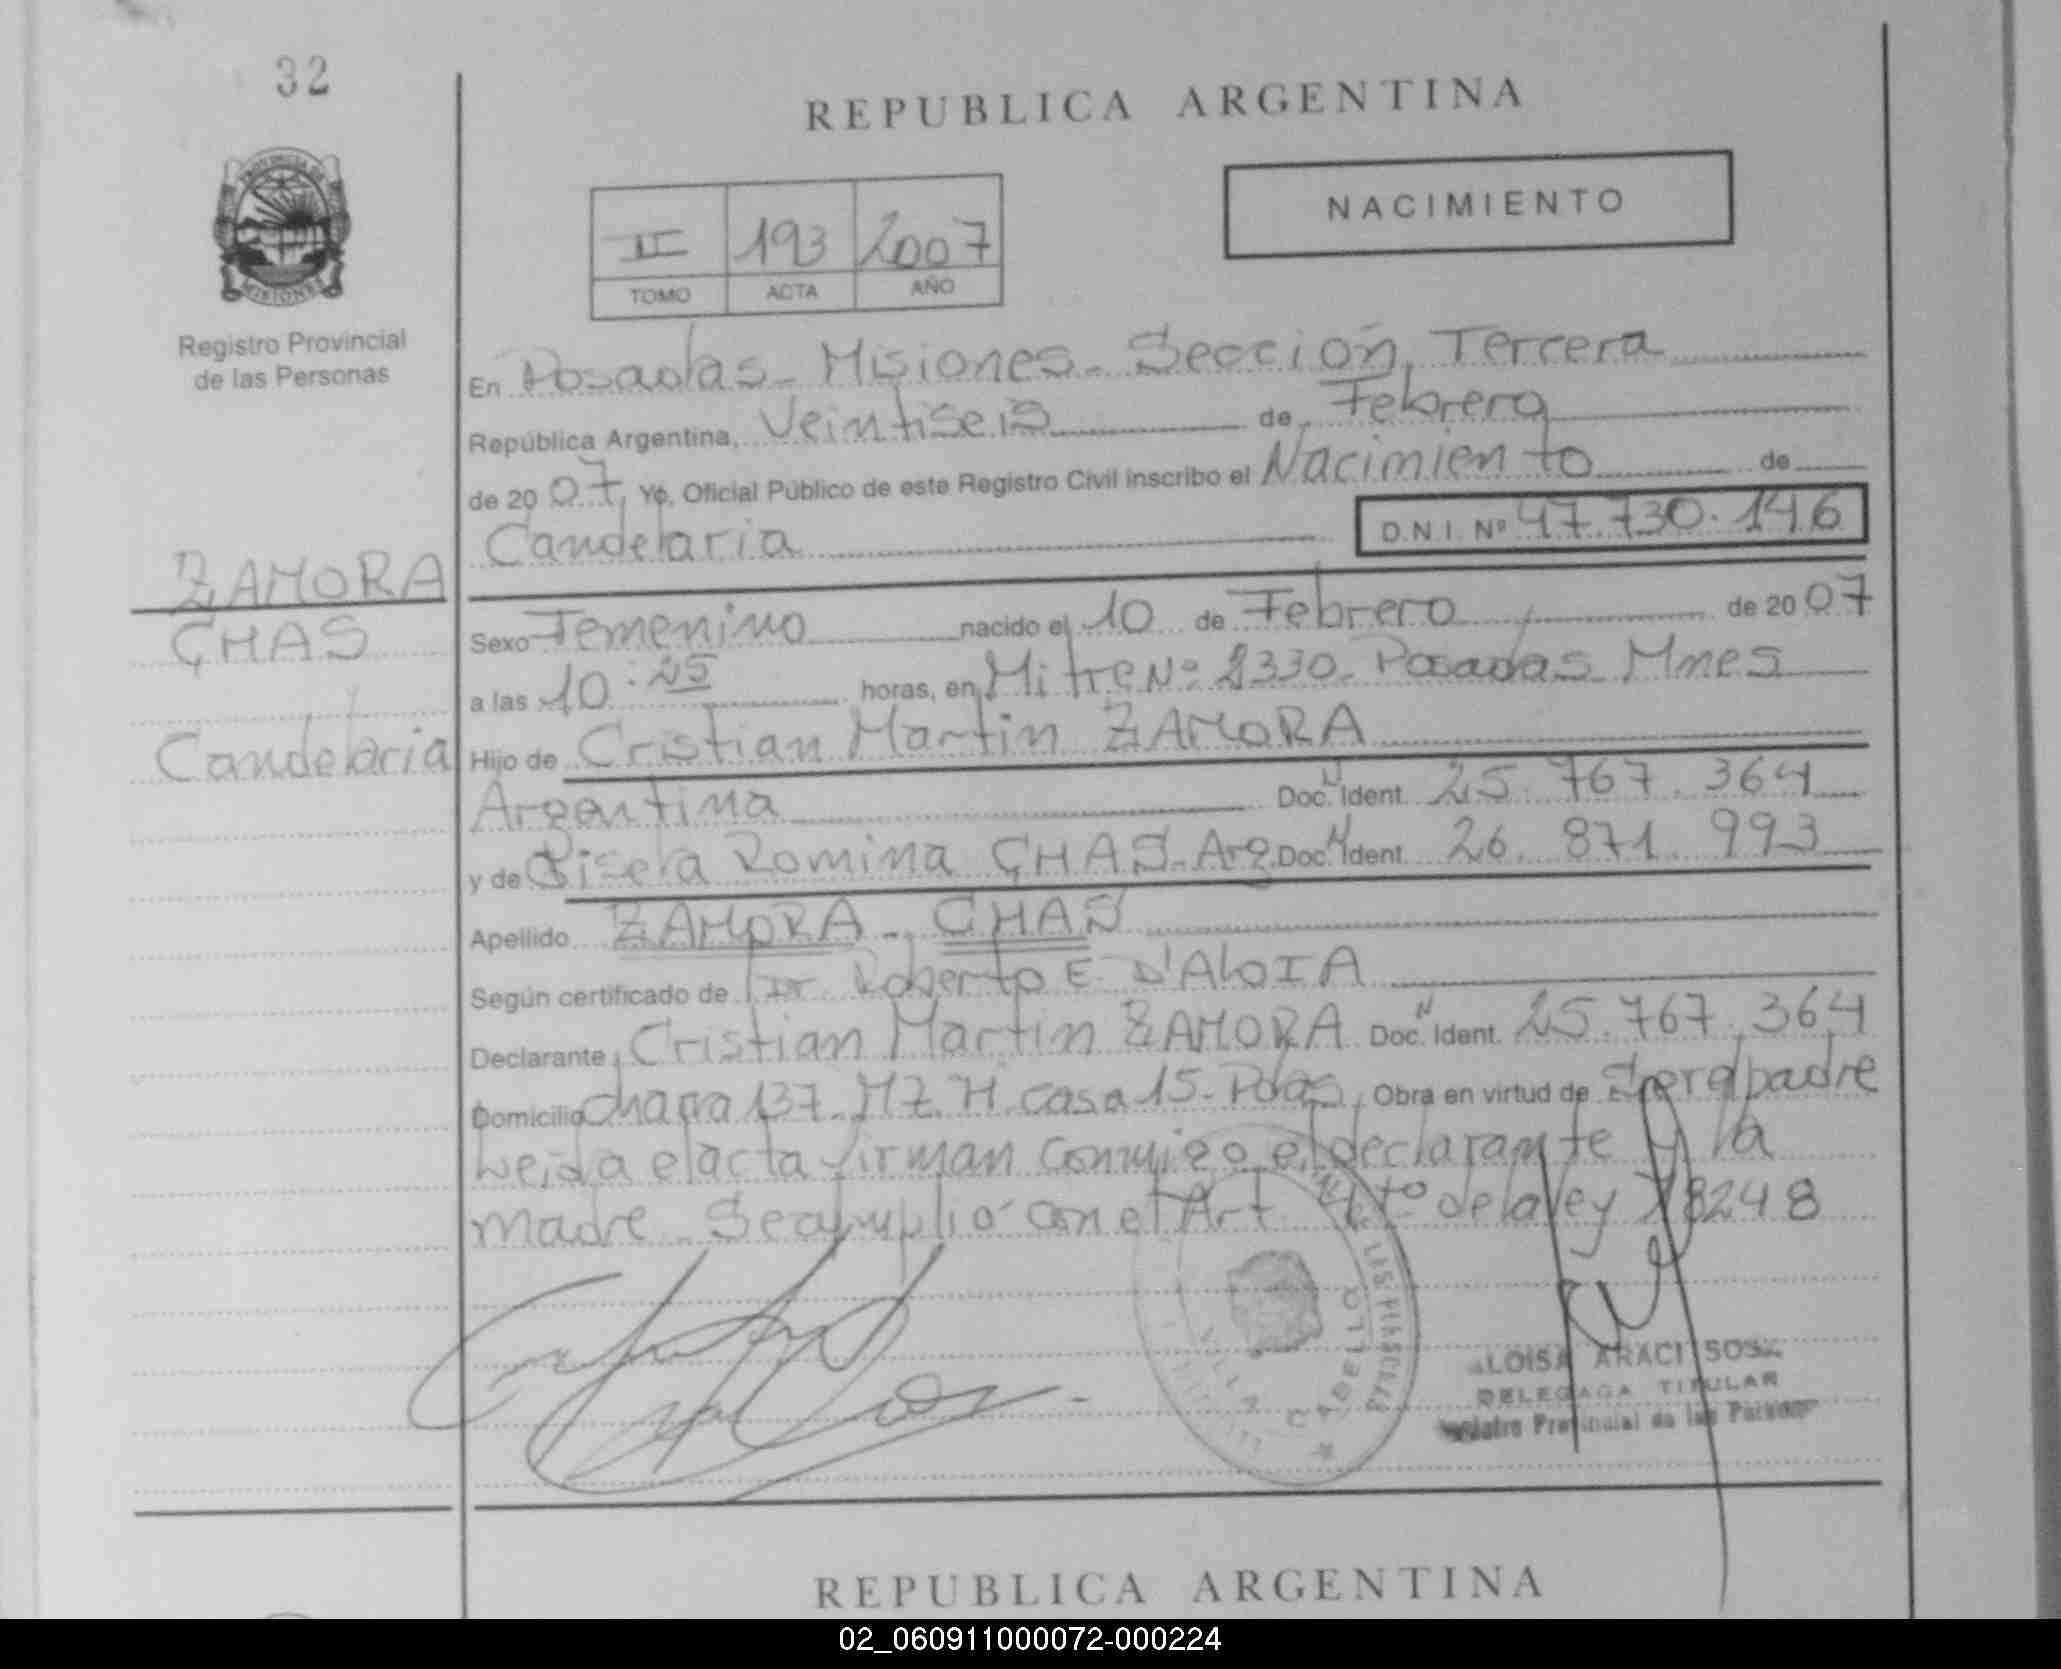 32
REPUBLICA ARGENTINA
NACIMIENTO
II 193 2007
TOMO ACTA AÑO
PROVINCIA DE
MISIONES
Registro Provincial
de las Personas
En Posadas - Misiones - Sección Tercera
República Argentina, Veintiseis de Febrero
de 20 07, Yo, Oficial Público de este Registro Civil inscribo el Nacimiento de
Candelaria D.N.I. Nº 47.730.146
ZAMORA
CHAS
Candelaria
Sexo Femenino nacido el 10 de Febrero de 20 07
a las 10:25 horas, en Mitre Nº 2330 - Posadas Mnes
Hijo de Cristian Martin ZAMORA
Argentina Doc. N Ident. 25.767.364
y de Gisela Romina CHAS - Arg. Doc. N Ident. 26.871.993
Apellido ZAMORA - CHAS
Según certificado de Dr. Roberto E. D'ALOIA
Declarante Cristian Martin ZAMORA Doc. N Ident. 25.767.364
Domicilio chacra 137 - MZ. H casa 15 - Pdas, Obra en virtud de Ser el padre
Leida el acta firman conmigo el declarante y la
madre - Se cumplió con el Art. 4to de la ley 18248
VILLA CABELLO
ELOISA ARACI SOSA
DELEGADA TITULAR
Registro Provincial de las Personas
REPUBLICA ARGENTINA
02_060911000072-000224